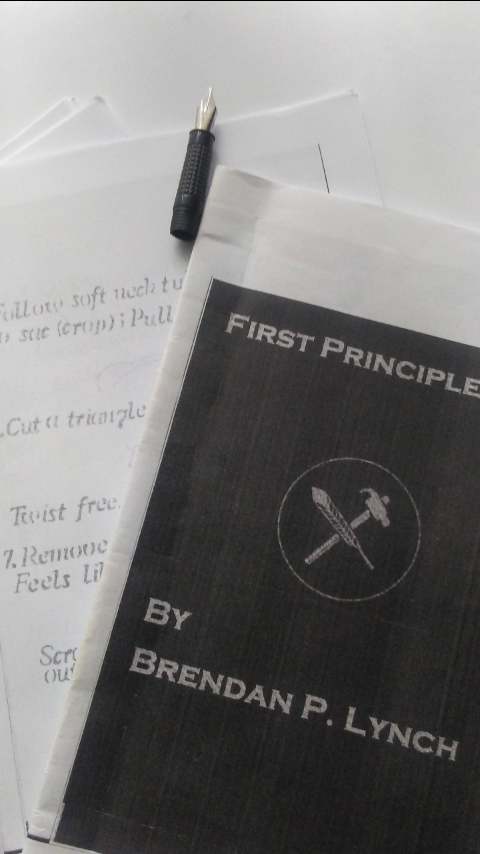 Follow soft neck tu
o sac (crop); Pull
.Cut a triangle
Twist free.
7. Remove
Feels li
Scr
out
FIRST PRINCIPLE
BY
BRENDAN P. LYNCH